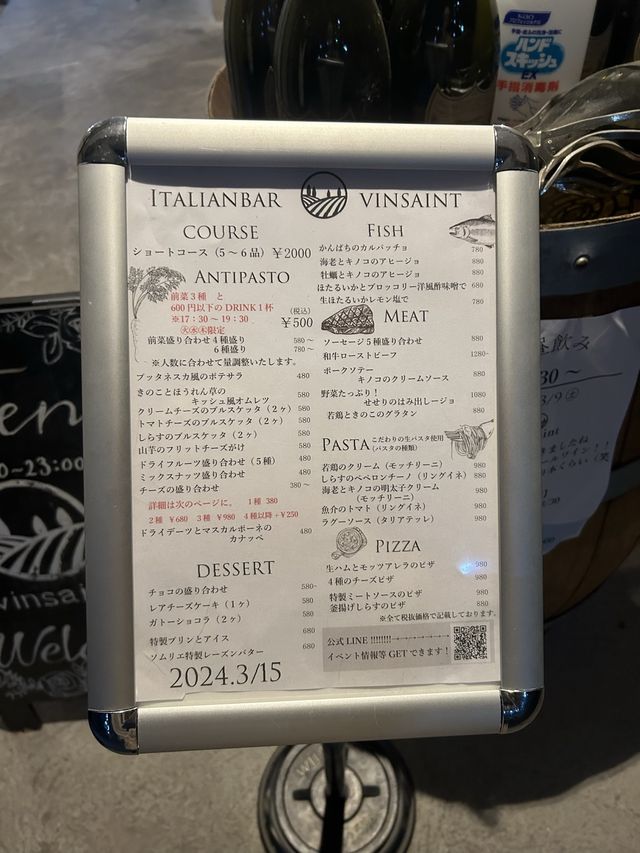 ITALIANBAR VINSAINT
COURSE
ショートコース（5～6品）￥2000
ANTIPASTO
前菜3種 と
600円以下のDRINK1杯
※17：30～19：30
㊋㊌㊍限定
(税込)
￥500
前菜盛り合わせ4種盛り 580～
6種盛り 780～
※人数に合わせて量調整いたします。
プッタネスカ風のポテサラ 480
きのことほうれん草の
キッシュ風オムレツ 580
クリームチーズのブルスケッタ（2ヶ）580
トマトチーズのブルスケッタ（2ヶ）580
しらすのブルスケッタ（2ヶ） 580
山芋のフリットチーズがけ 580
ドライフルーツ盛り合わせ（5種） 480
ミックスナッツ盛り合わせ 480
チーズの盛り合わせ 380～
詳細は次のページに。 1種 380
2種 ￥680 3種 ￥980 4種以降+￥250
ドライデーツとマスカルポーネの
カナッペ 480
DESSERT
チョコの盛り合わせ 580~
レアチーズケーキ（1ヶ） 580
ガトーショコラ（2ヶ） 580
特製プリンとアイス 680
ソムリエ特製レーズンバター 680
2024.3/15
FISH
かんぱちのカルパッチョ 780
海老とキノコのアヒージョ 880
牡蠣とキノコのアヒージョ 880
ほたるいかとブロッコリー洋風酢味噌で 680
生ほたるいかレモン塩で 780
MEAT
ソーセージ5種盛り合わせ 880
和牛ローストビーフ 1280~
ポークソテー
キノコのクリームソース 880
野菜たっぷり！
せせりのはみ出しージョ 1080
若鶏ときのこのグラタン 880
PASTA こだわりの生パスタ使用
(パスタの種類)
若鶏のクリーム（モッチリーニ） 980
しらすのペペロンチーノ（リングイネ）880
海老とキノコの明太子クリーム
（モッチリーニ） 980
魚介のトマト（リングイネ） 980
ラグーソース（タリアテッレ） 980
PIZZA
生ハムとモッツァレラのピザ 980
4種のチーズピザ 980
特製ミートソースのピザ 980
釜揚げしらすのピザ 880
※全て税抜価格で記載しております。
公式LINE !!!!!!!!
イベント情報等GETできます！
Kao
ハンド
スキッシュ
EX
手指消毒剤
~23:00
vinsai
Wel
昼飲み
3/9 ㊏